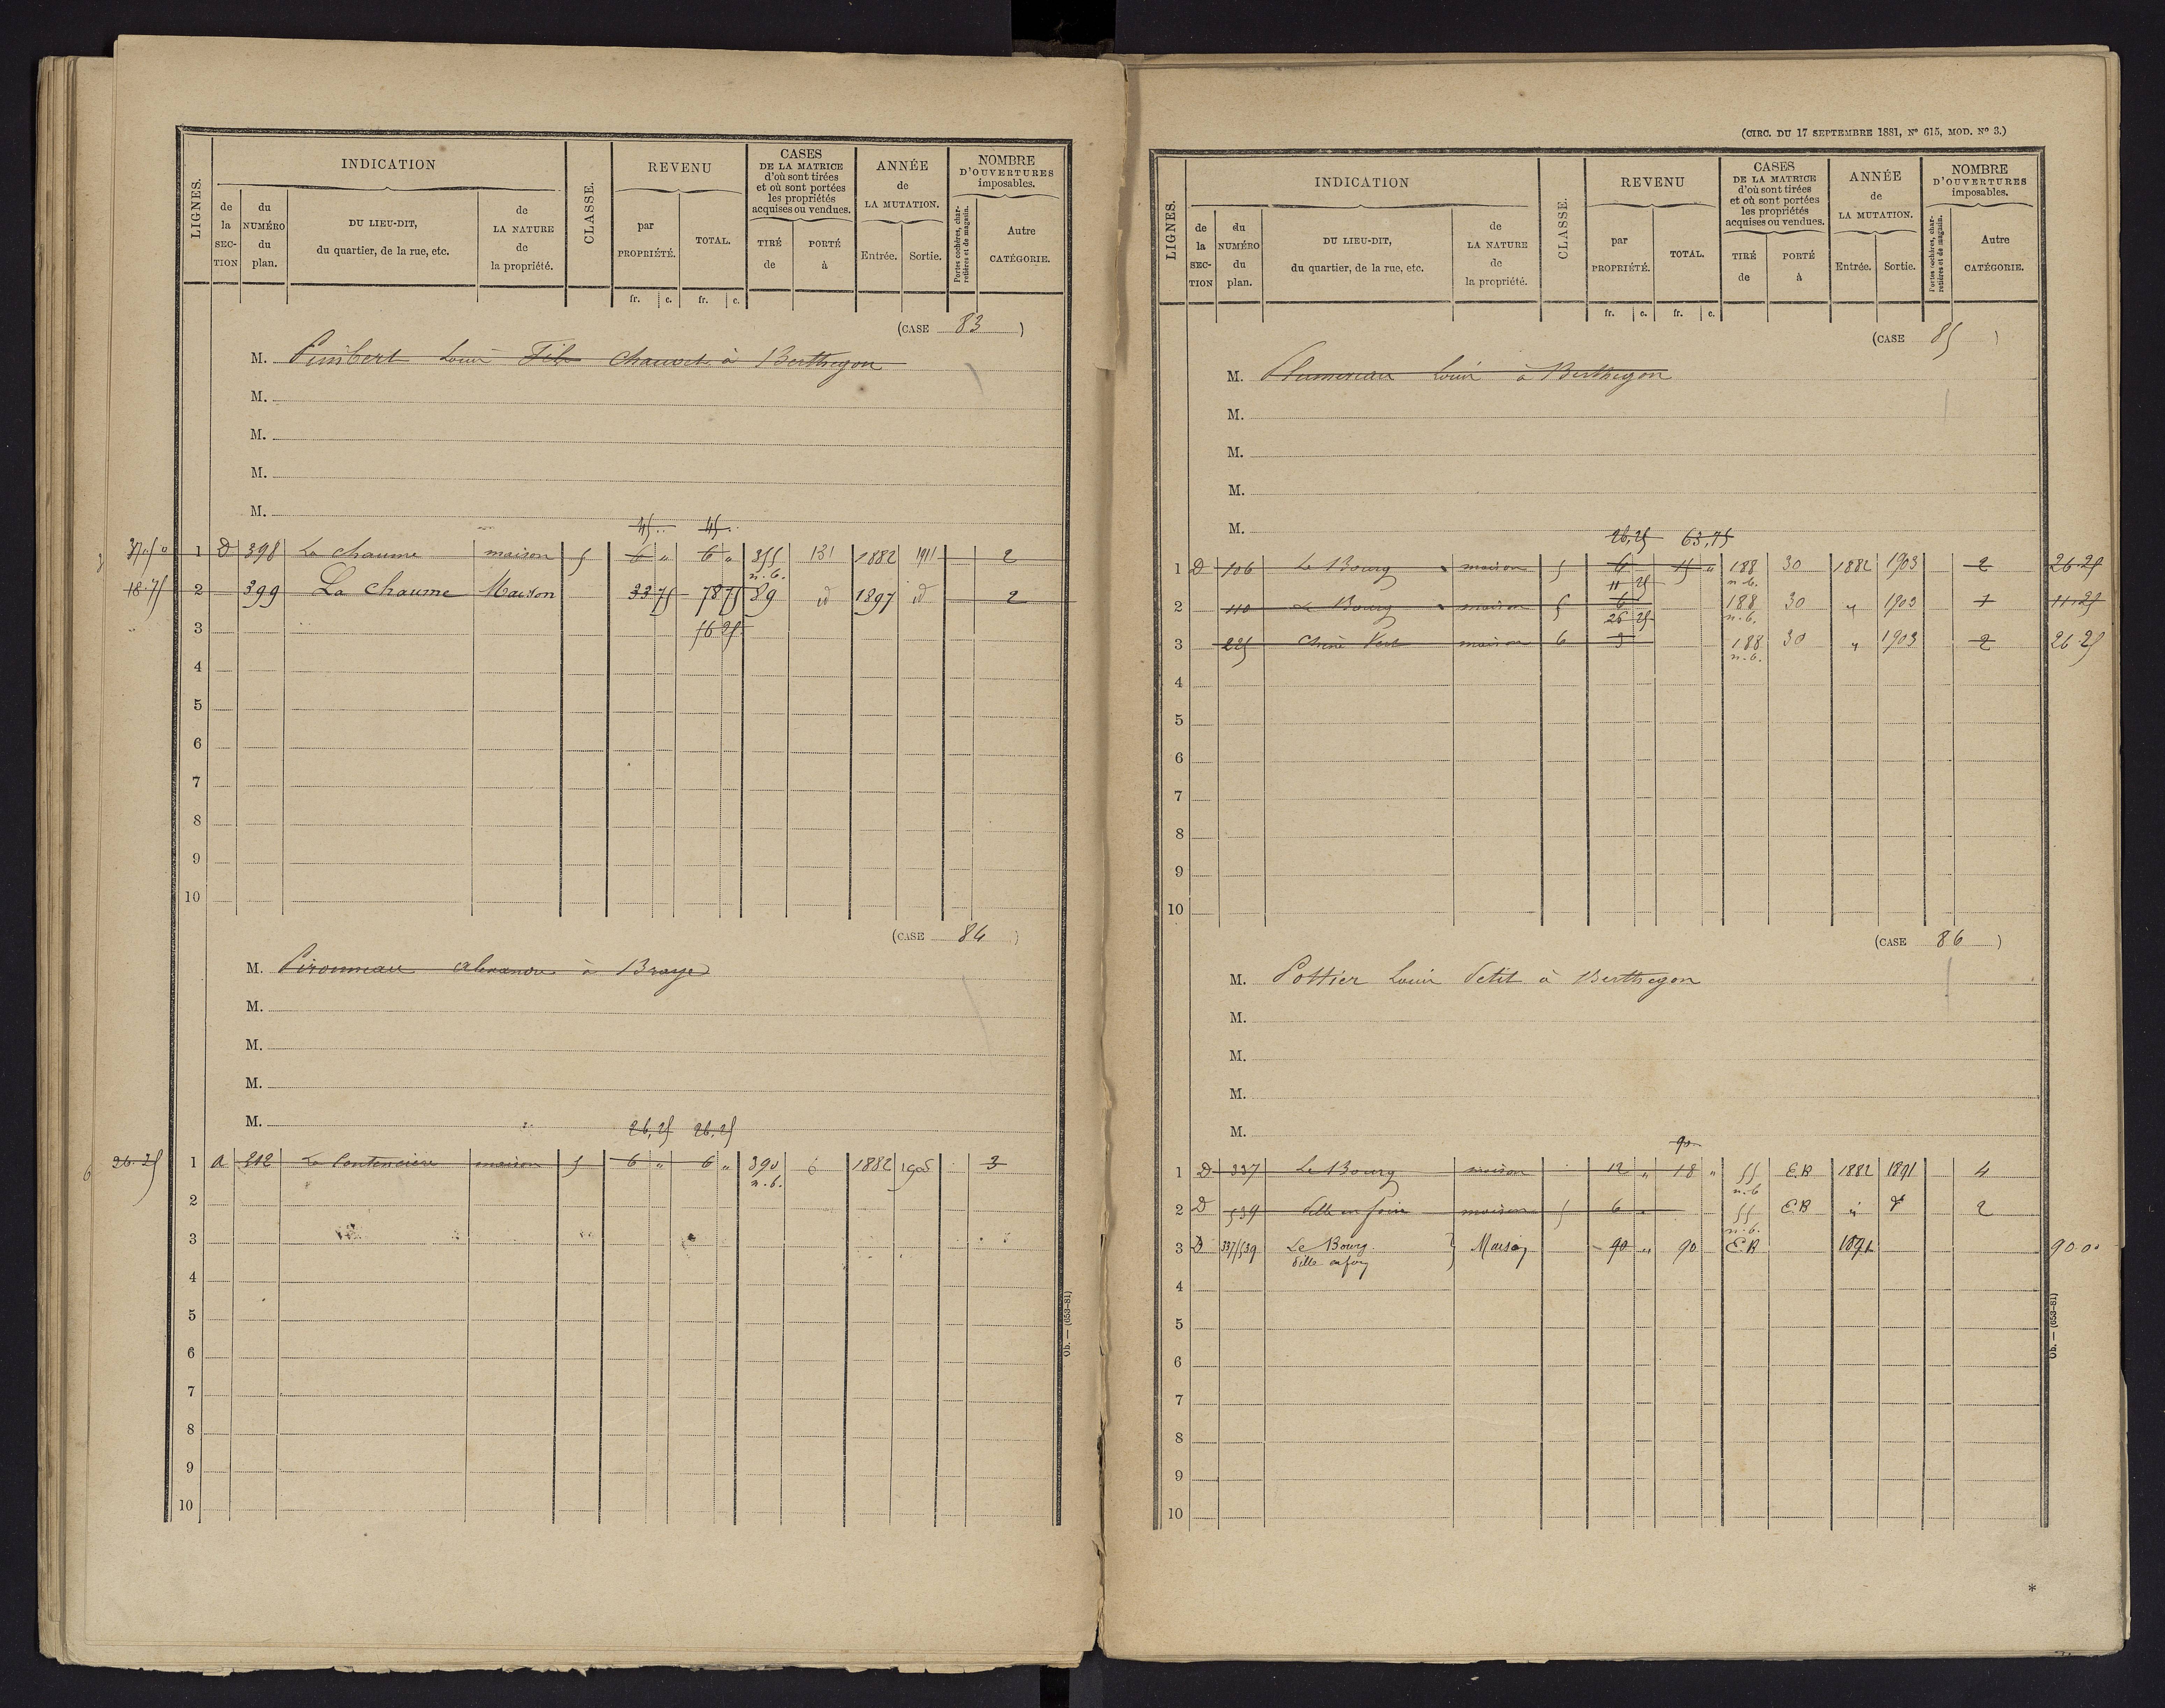 LIGNES.
INDICATION
de la SECTION
du NUMÉRO du plan.
DU LIEU-DIT, du quartier, de la rue, etc.
de LA NATURE de la propriété.
CLASSE.
REVENU
par PROPRIÉTÉ.
TOTAL.
fr. c. fr. c.
CASES DE LA MATRICE d'où sont tirées et où sont portées les propriétés acquises ou vendues.
TIRÉ de
PORTÉ à
ANNÉE de LA MUTATION.
Entrée. Sortie.
NOMBRE D'OUVERTURES imposables.
Portes cochères, charretières et de magasin.
Autre CATÉGORIE.
(CASE 83)
M. Pimbert Louis Fils Chauvet à Berthegon
M.
M.
M.
M.
45 .. 45 ..
37.50 1 D 398 La chaume maison 5 6 " 6 " 355 131 1882 1911 2
n.b.
18.75 2 399 La Chaume Maison 33 75 78 75 89 id 1897 id 2
3 56 25
4
5
6
7
8
9
10
(CASE 84)
M. Pironneau alexandre à Braye
M.
M.
M.
M.
26,25 26,25
6 26.25 1 A 212 maison 5 6 " 6 " 390 6 1882 1905 3
n.b.
2
3
4
5
6
7
8
9
10
Ob. — (653-81)
(CIRC. DU 17 SEPTEMBRE 1881, Nº 615, MOD. Nº 3.)
LIGNES.
INDICATION
de la SECTION
du NUMÉRO du plan.
DU LIEU-DIT, du quartier, de la rue, etc.
de LA NATURE de la propriété.
CLASSE.
REVENU
par PROPRIÉTÉ.
TOTAL.
fr. c. fr. c.
CASES DE LA MATRICE d'où sont tirées et où sont portées les propriétés acquises ou vendues.
TIRÉ de
PORTÉ à
ANNÉE de LA MUTATION.
Entrée. Sortie.
NOMBRE D'OUVERTURES imposables.
Portes cochères, charretières et de magasin.
Autre CATÉGORIE.
(CASE 85)
M. Plumereau Louis à Berthegon
M.
M.
M.
M.
26,25 63,75
1 D 106 Le Bourg maison 5 6 15 " 188 30 1882 1903 2 26.25
11 25 n.b.
2 110 Le Bourg maison 5 6 188 30 " 1903 1 11.25
26 25 n.b.
3 225 Chêne Vert maison 6 3 188 30 " 1903 2 26.25
n.b.
4
5
6
7
8
9
10
(CASE 86)
M. Pottier Louis Petit à Berthegon
M.
M.
M.
M.
90
1 D 337 Le Bourg maison 12 " 18 " 55 E.B 1882 1891 4
n.b.
2 D 539 maison 5 6 " 55 E.B " dº 2
n.b.
3 D 337/539 Le Bourg } Maison 90 " 90 E.B 1891 90.00
4
5
6
7
8
9
10
Ob. — (653-81)
*